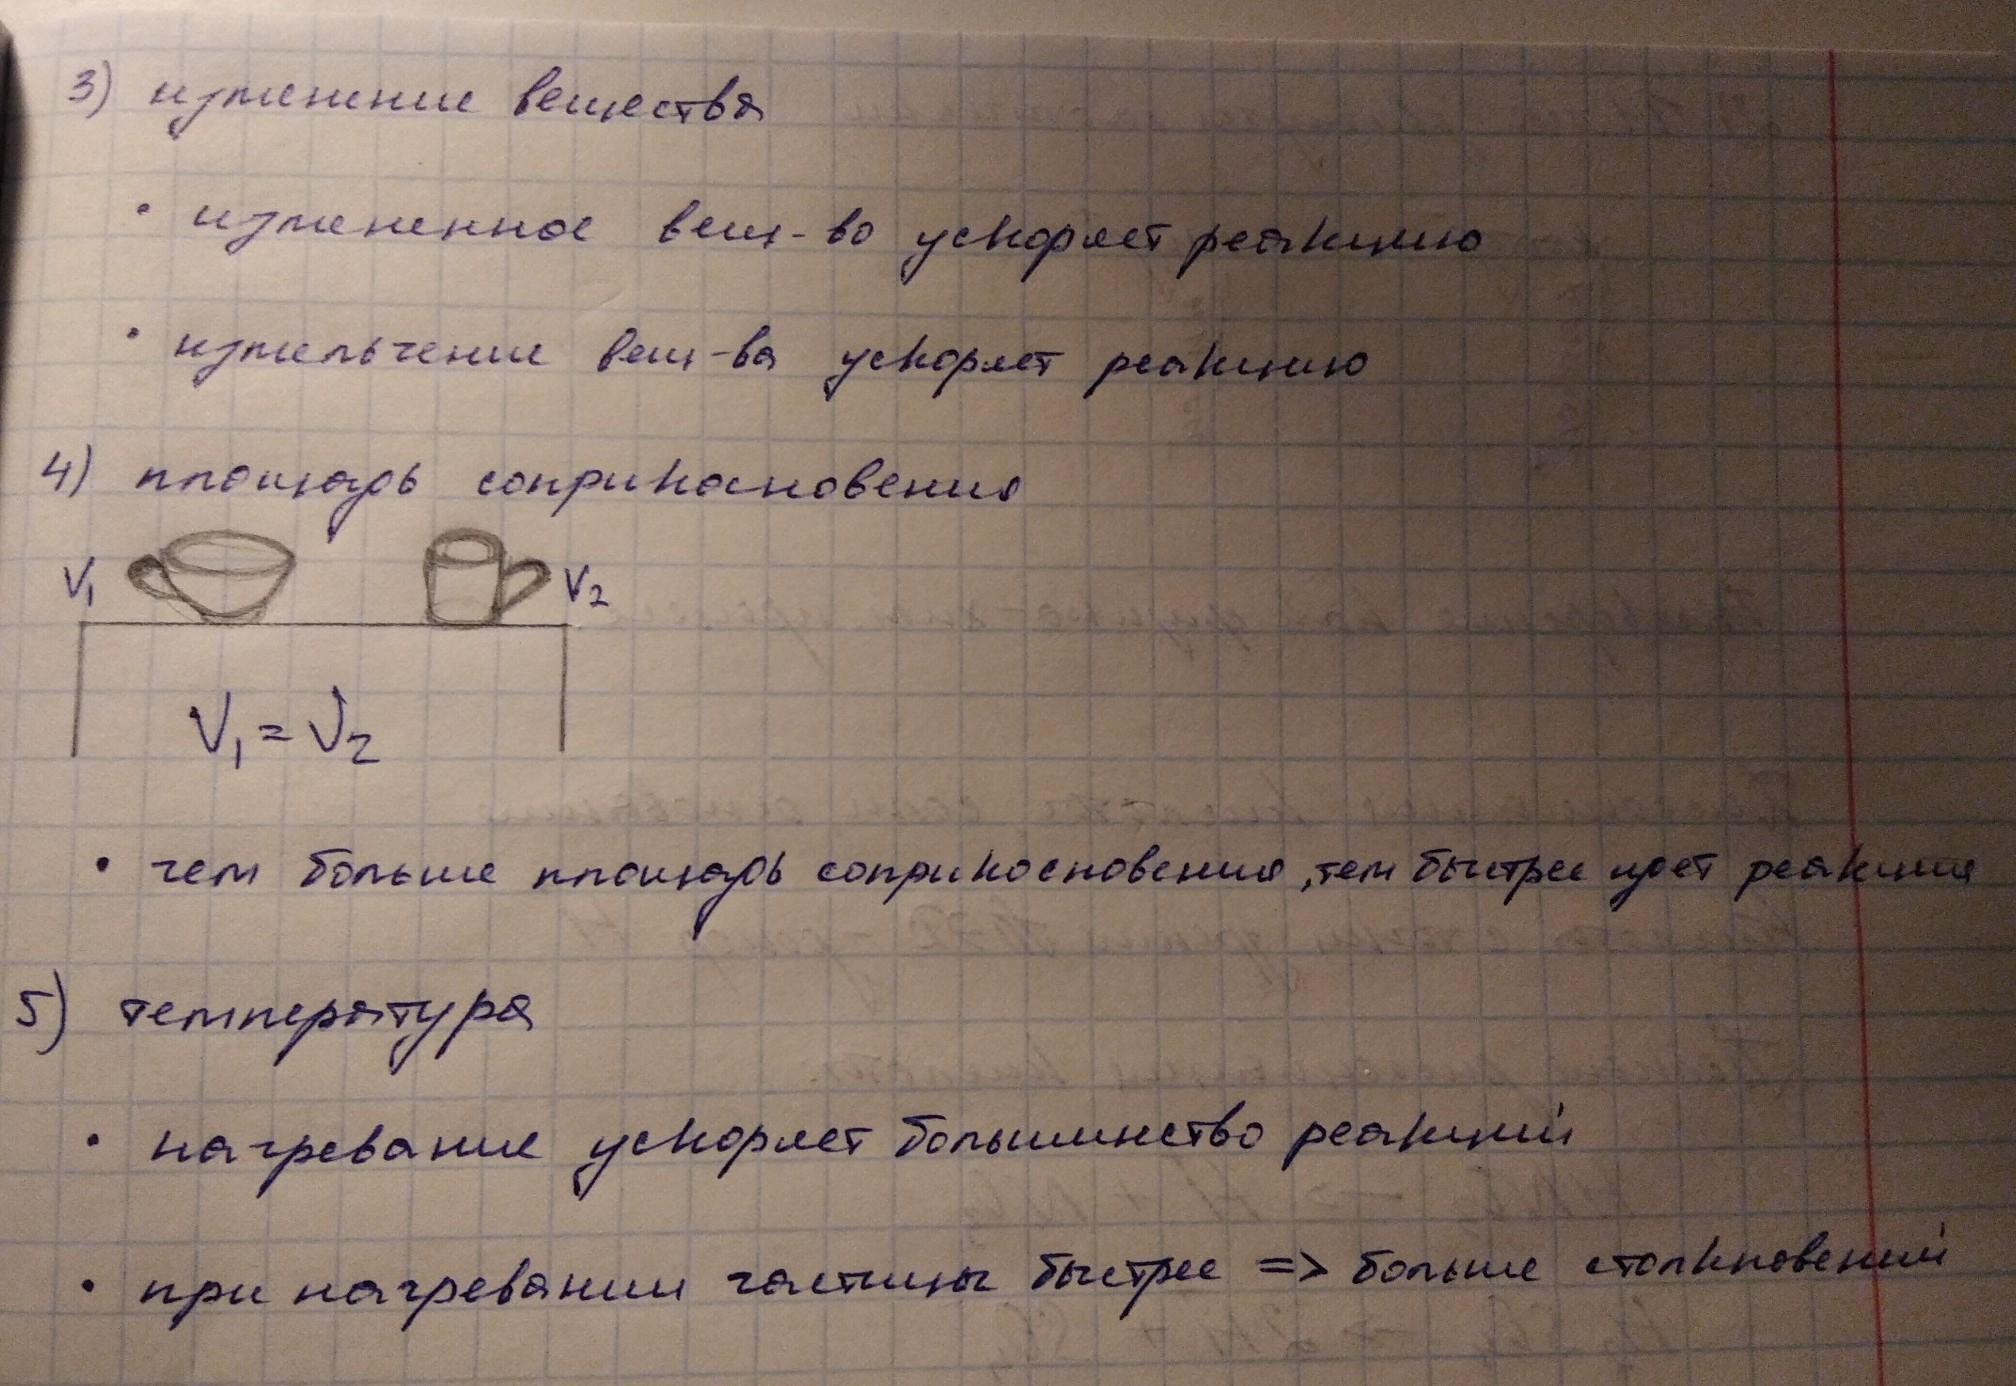 3) изменение вещества
• измененное вещ-во ускоряет реакцию
• измельчение вещ-ва ускоряет реакцию
4) площадь соприкасновения
V₁ V₂
V₁ = V₂
• чем больше площадь соприкосновения, тем быстрее идет реакция
5) температура
• нагревание ускоряет большинство реакций
• при нагревании частицы быстрее => больше столкновений